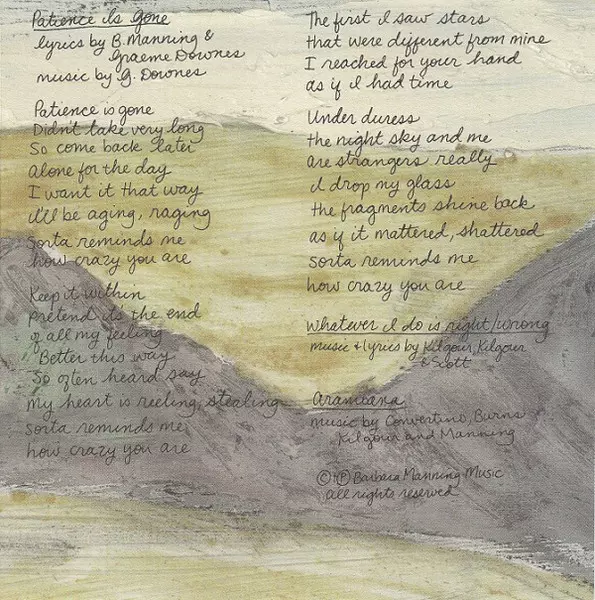 Patience Is Gone
lyrics by B. Manning &
Graeme Downes
music by G. Downes
Patience is gone
Didn't take very long
So come back later
alone for the day
I want it that way
it'll be aging, raging
sorta reminds me
how crazy you are
Keep it within
pretend it's the end
of all my feeling
Better this way
So often heard say
my heart is reeling, stealing
sorta reminds me
how crazy you are
The first I saw stars
that were different from mine
I reached for your hand
as if I had time
Under duress
the night sky and me
are strangers really
I drop my glass
the fragments shine back
as if it mattered, shattered
sorta reminds me
how crazy you are
Whatever I do is right/wrong
music & lyrics by Kilgour, Kilgour
& Scott
Aramoana
music by Convertino, Burns
Kilgour and Manning
© ℗ Barbara Manning Music
all rights reserved